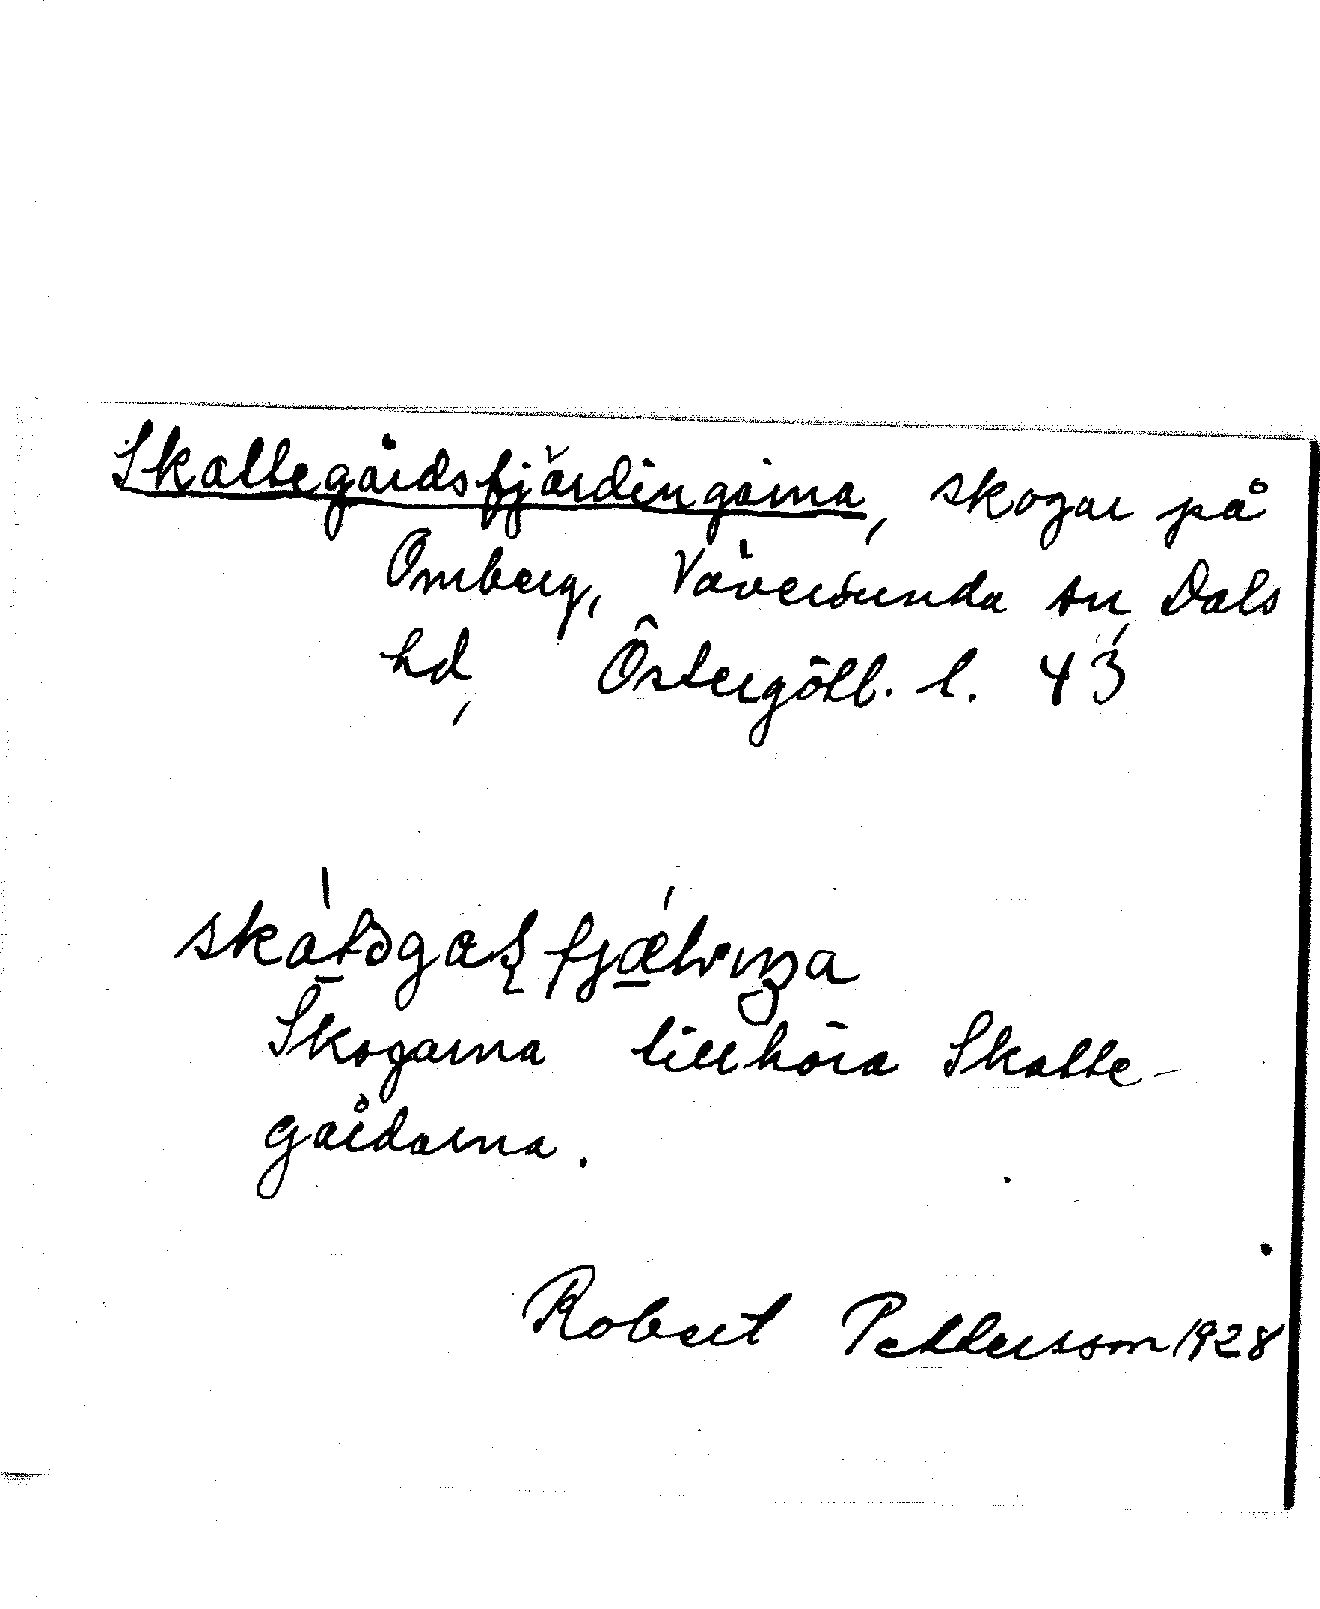 Skattegårdsfjärdingarna, skogar på
Omberg, Väversunda sn, Dals
hd, Östergötl. l. 43
Skogarna tillhöra Skatte-
gårdarna.
Robert Pettersson 1928